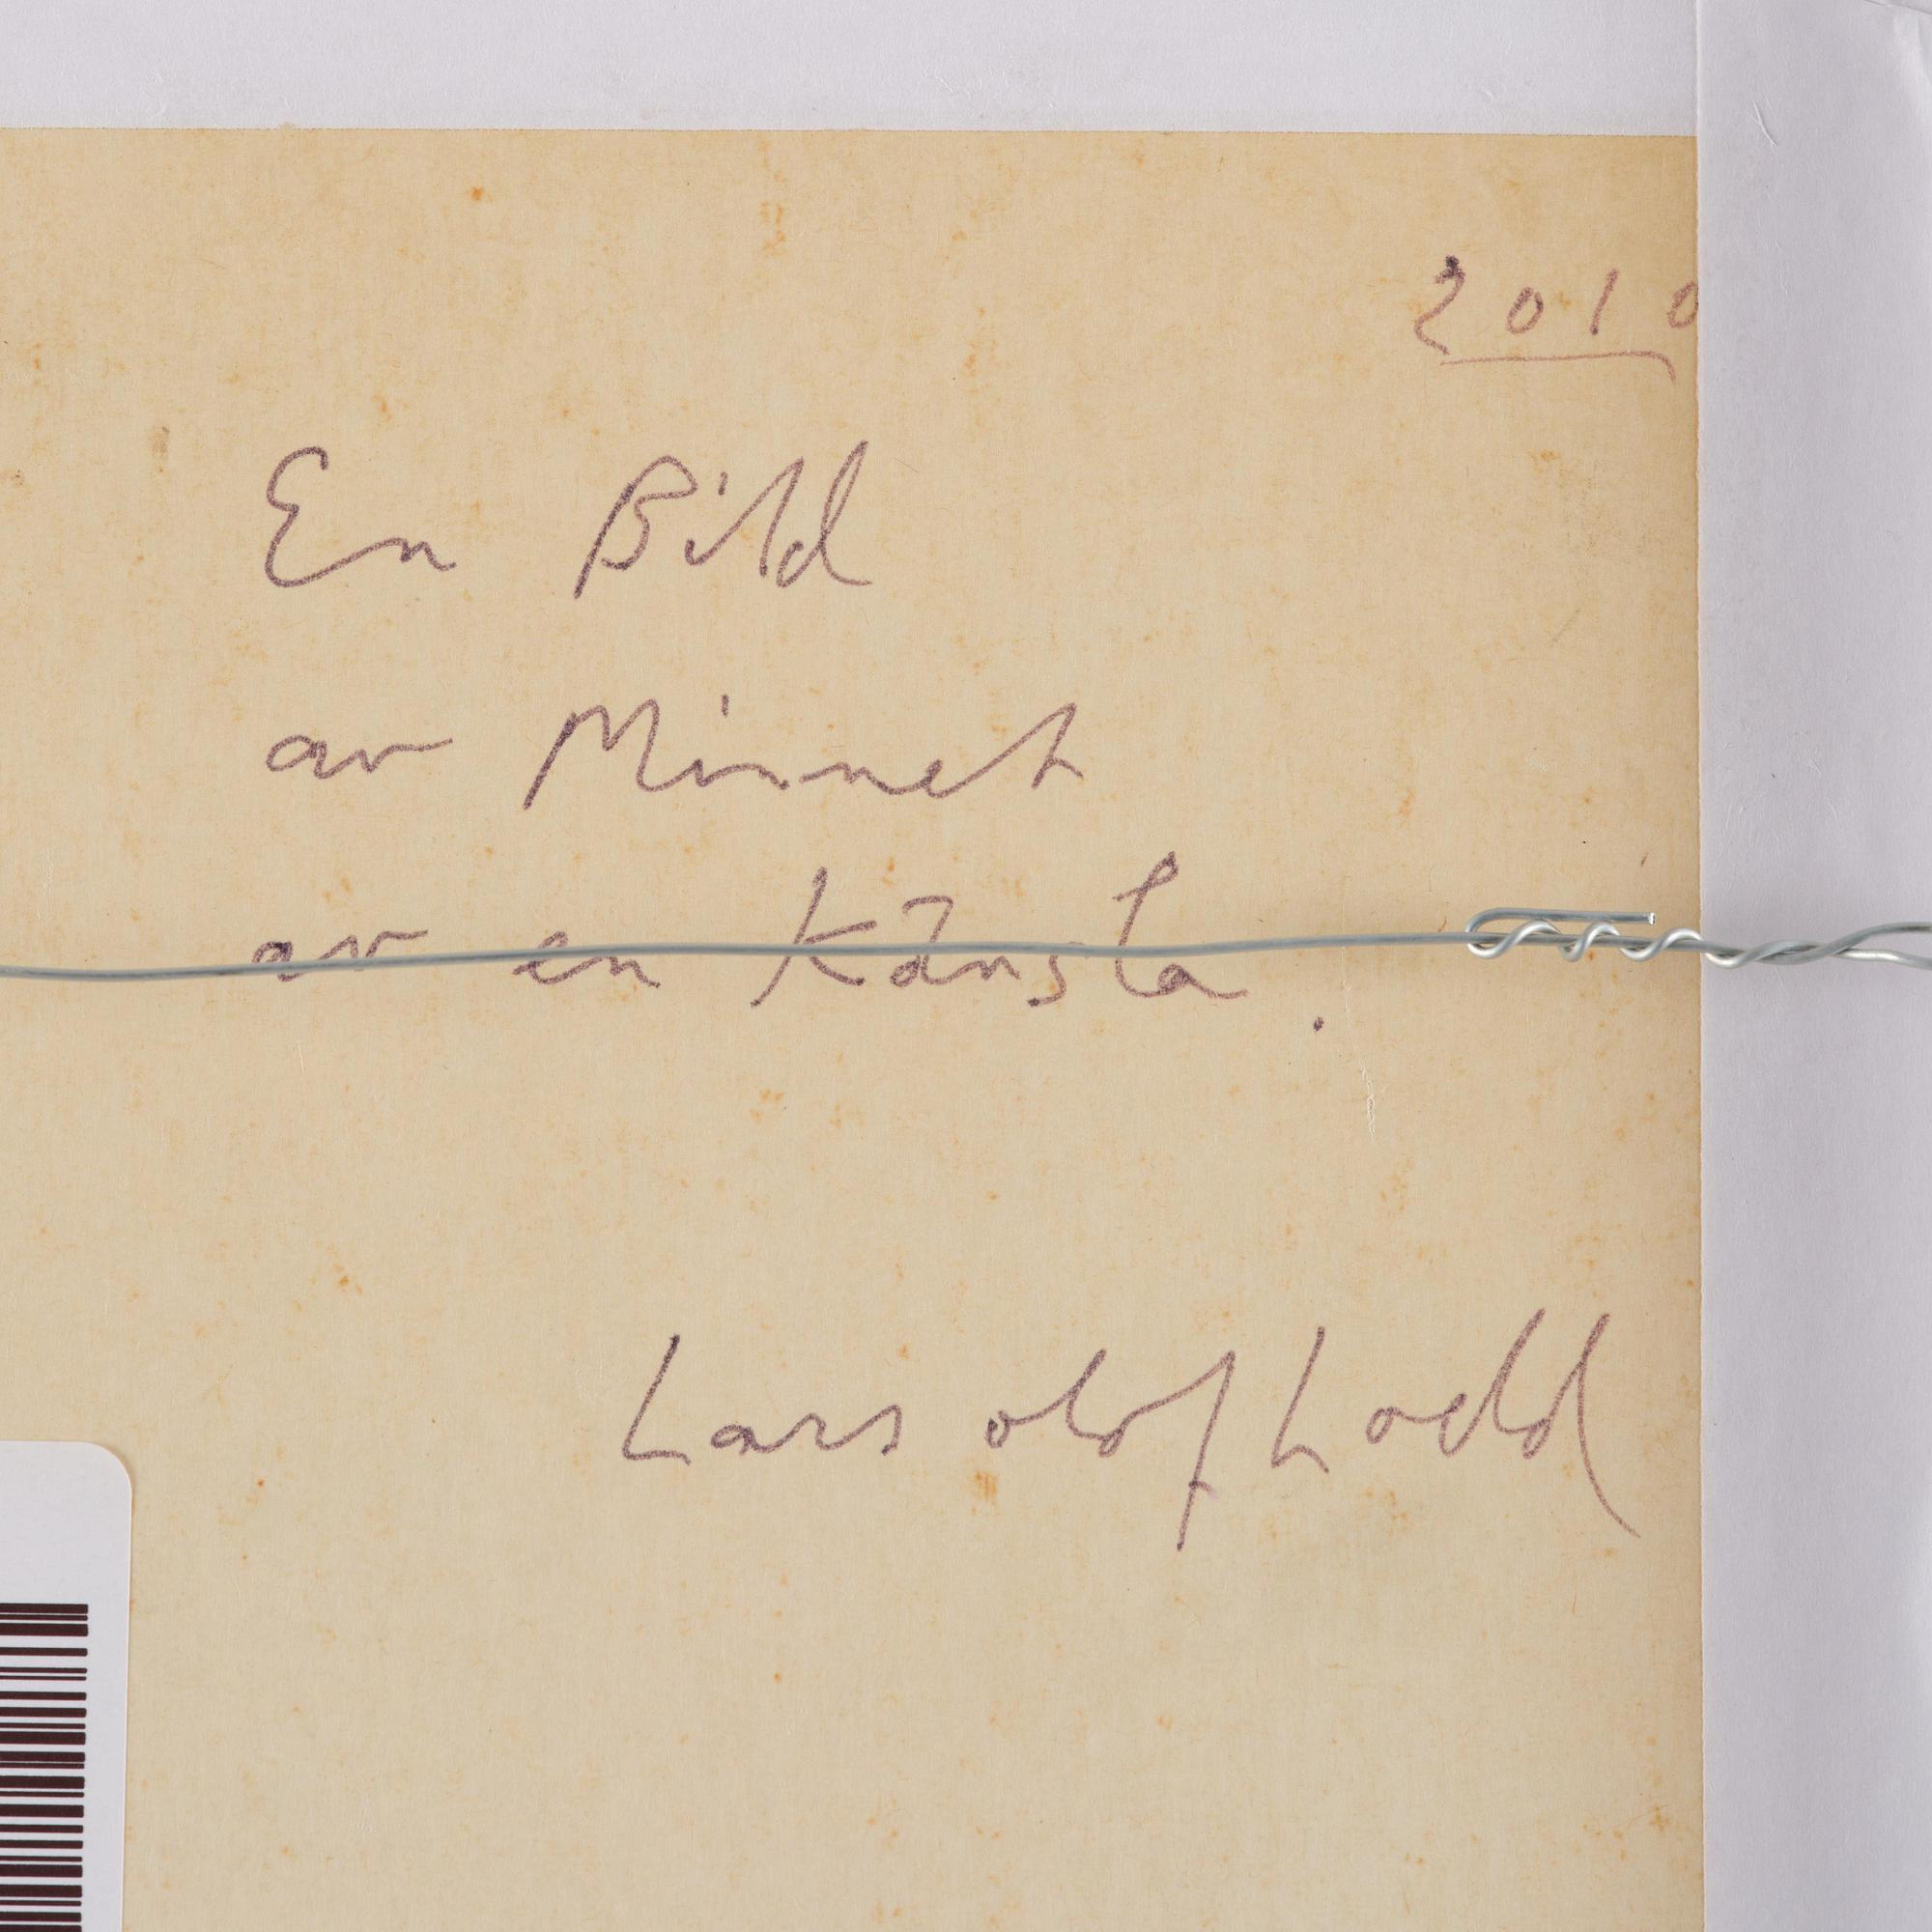 2010
En Bild
av Minnet
av en Känsla.
Lars olof Loeld